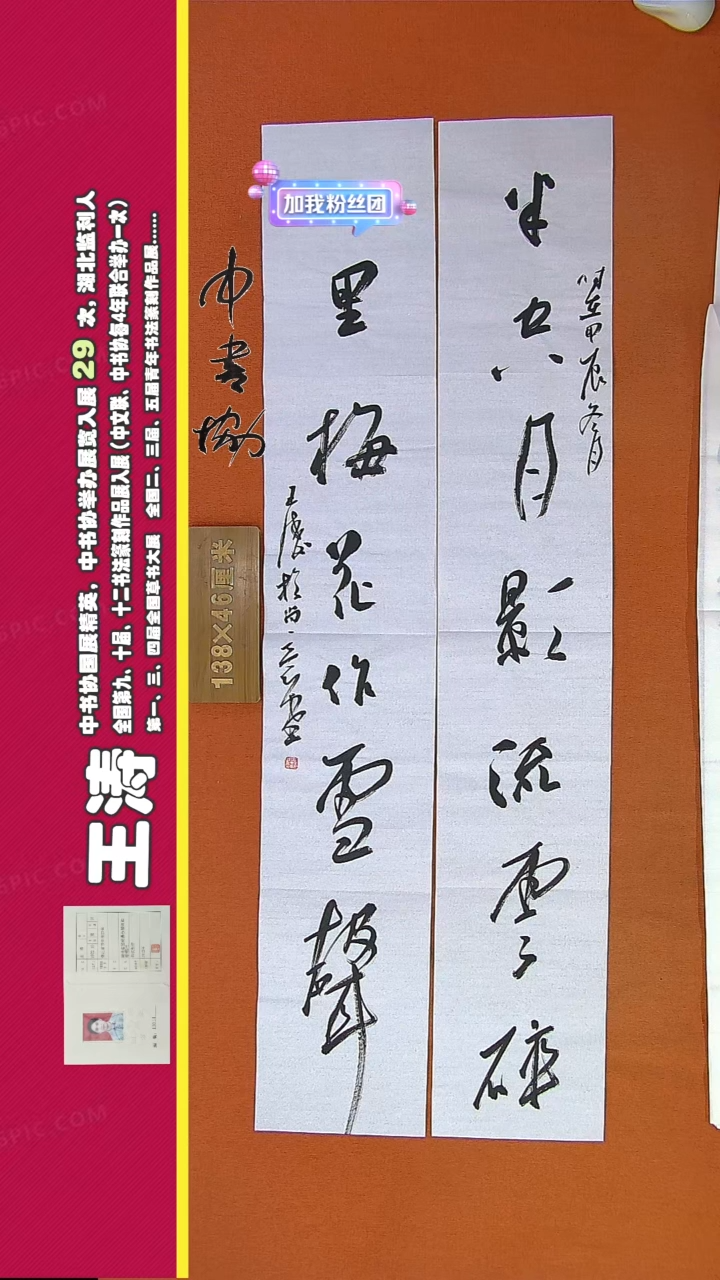 中书协国展精英，中书协举办展览入展 29 次，湖北监利人
全国第九、十届、十二书法篆刻作品展入展（中文联、中书协每4年联合举办一次）
第一、三、四届全国草书大展 全国二、三届、五届青年书法篆刻作品展......
王涛
中書協
138×46厘米
加我粉丝团
半空月影流雲碎
時在甲辰冬月
里梅花作雪聲
王濤於尚意堂